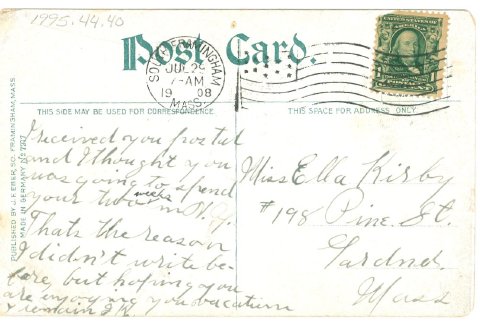 1995.44.40
Post Card.
SOUTH FRAMINGHAM
JUL 29
7-AM
1908
MASS.
UNITED STATES OF AMERICA
THIS SIDE MAY BE USED FOR CORRESPONDENCE.
THIS SPACE FOR ADDRESS ONLY.
PUBLISHED BY J. F. EBER, SO. FRAMINGHAM, MASS.
MADE IN GERMANY
I received your postal
and I thought you
was going to spend
your two weeks in N.Y.
Thats the reason
I didn't write be-
fore, but hoping you
are enjoying you vacation
I remain
Miss Ella Kirby
#198 Pine St.
Gardner
Mass